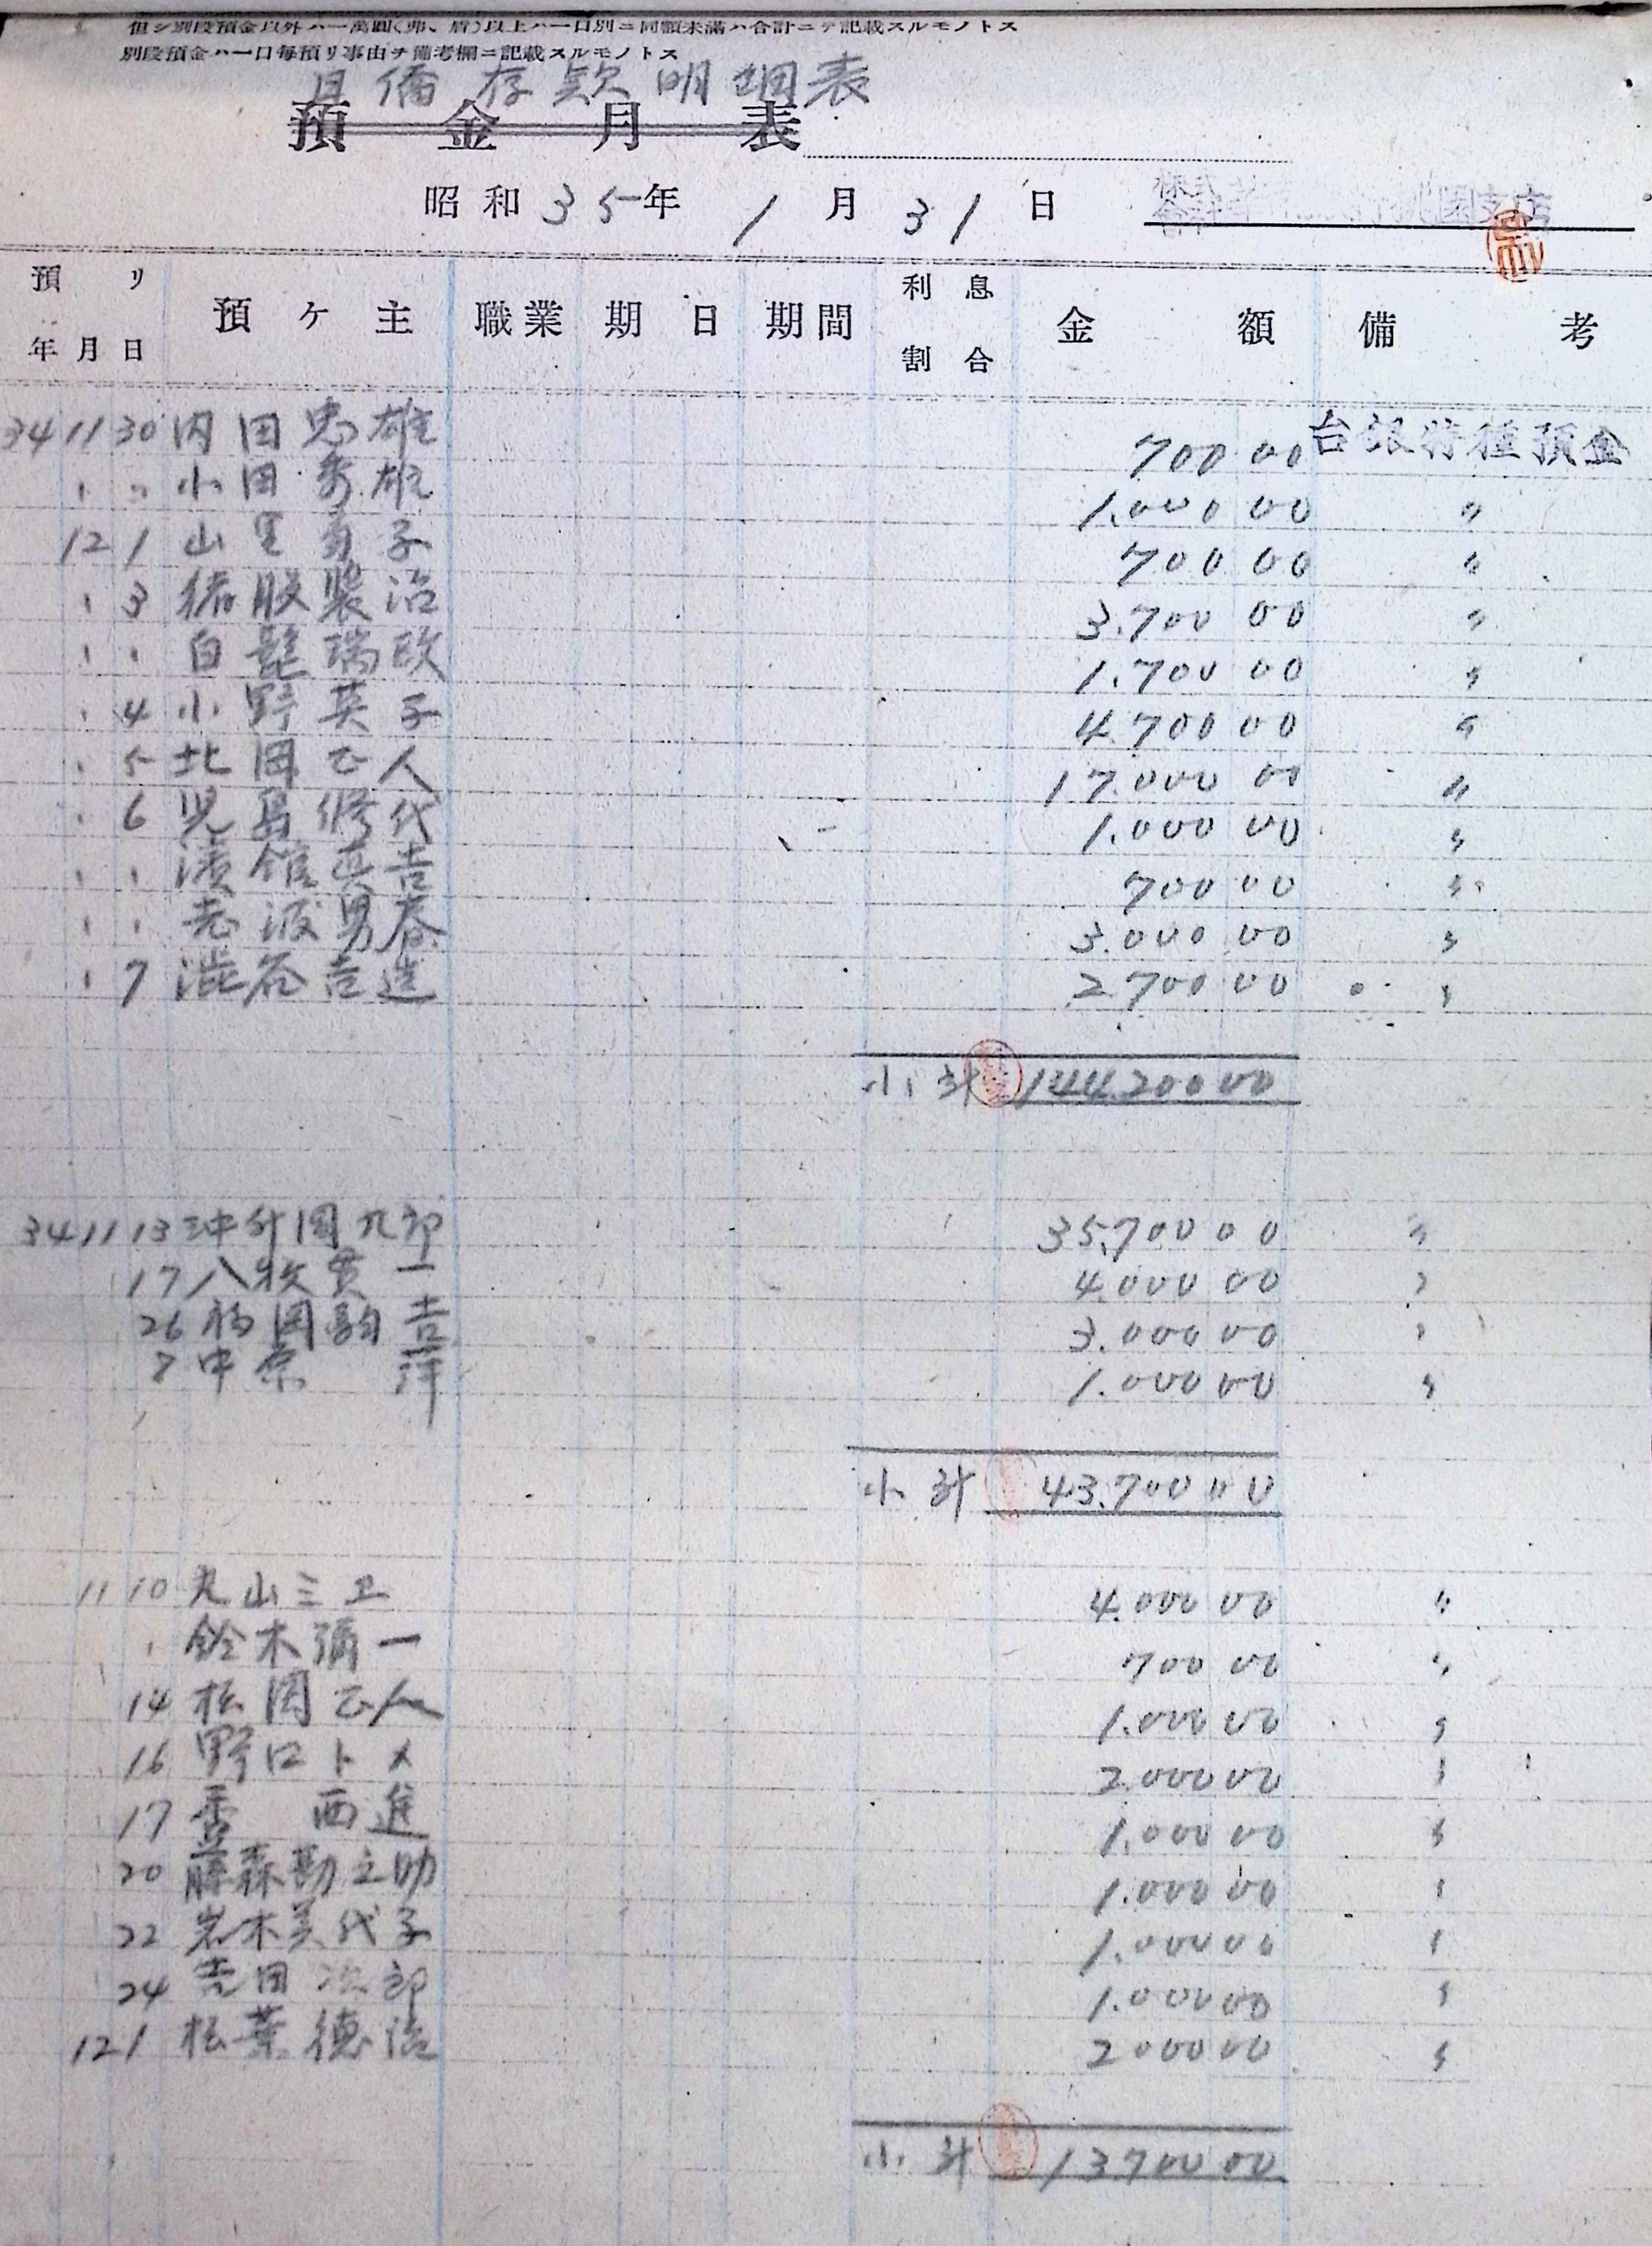 但シ別段預金以外ハ一萬圓(弗、盾)以上ハ一口別ニ同額未滿ハ合計ニテ記載スルモノトス
別段預金ハ一口每預リ事由ヲ備考欄ニ記載スルモノトス
日僑存欵明細表
預金月表
昭和35年1月31日
預リ年月日 預ケ主 職業 期日 期間 利息割合 金額 備考
34 11 30 内田忠雄 700 00 台銀特種預金
〃 〃 小田秀雄 1.000 00 〃
12 1 山里 子 700 00 〃
〃 3 猪股 治 3.700 00 〃
〃 〃 白髭瑞 1.700 00 〃
〃 4 小野英子 4.700 00 〃
〃 5 北岡正人 17.000 00 〃
〃 6 児島修代 1.000 00 〃
〃 〃 濱館 吉 700 00 〃
〃 〃 男春 3.000 00 〃
〃 7 澁谷吉造 2.700 00 〃
小計 144.200 00
34 11 13 沖 九郎 35.700 00 〃
17 八牧貫一 4.000 00 〃
26 福岡駒吉 3.000 00 〃
中原 洋 1.000 00 〃
小計 43.700 00
11 10 丸山三 4.000 00 〃
〃 鈴木彌一 700 00 〃
14 松岡正人 1.000 00 〃
16 野口トメ 2.000 00 〃
17 西進 1.000 00 〃
20 藤森勘之助 1.000 00 〃
22 岩木美代子 1.000 00 〃
24 吉田次郎 1.000 00 〃
12 1 松葉徳治 2000 00 〃
小計 13700 00